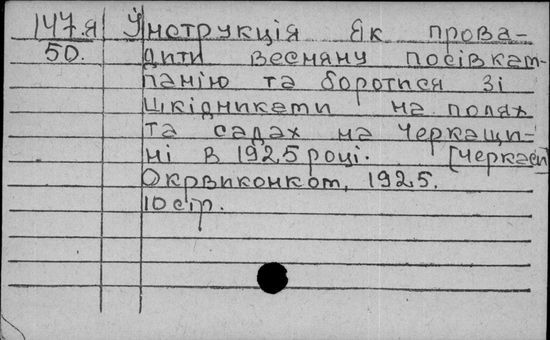 147.Я Інструкція Як прова-
50. дити весняну посівкам-
панію та боротися зі
шкідниками на полях
та садах на Черкащи-
ні в 1925 році. [Черкаси]
Окрвиконком, 1925.
10 стр.